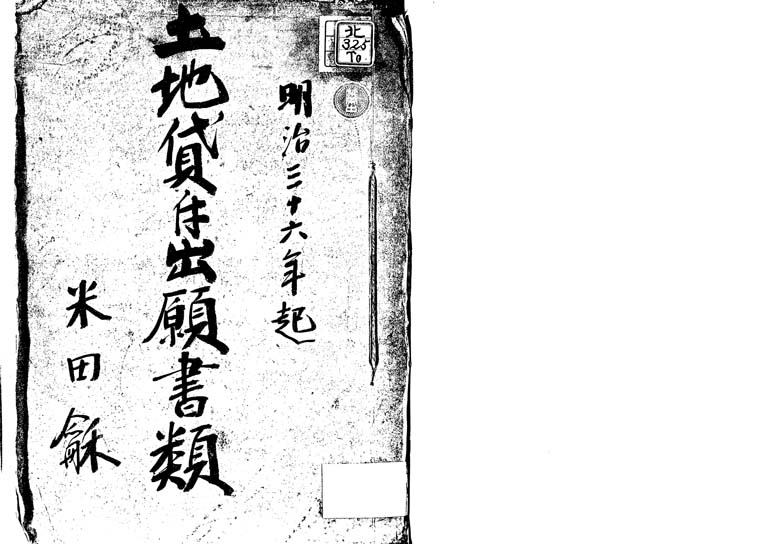 北
325
To
明治三十六年起
土地貸付出願書類
米田龢